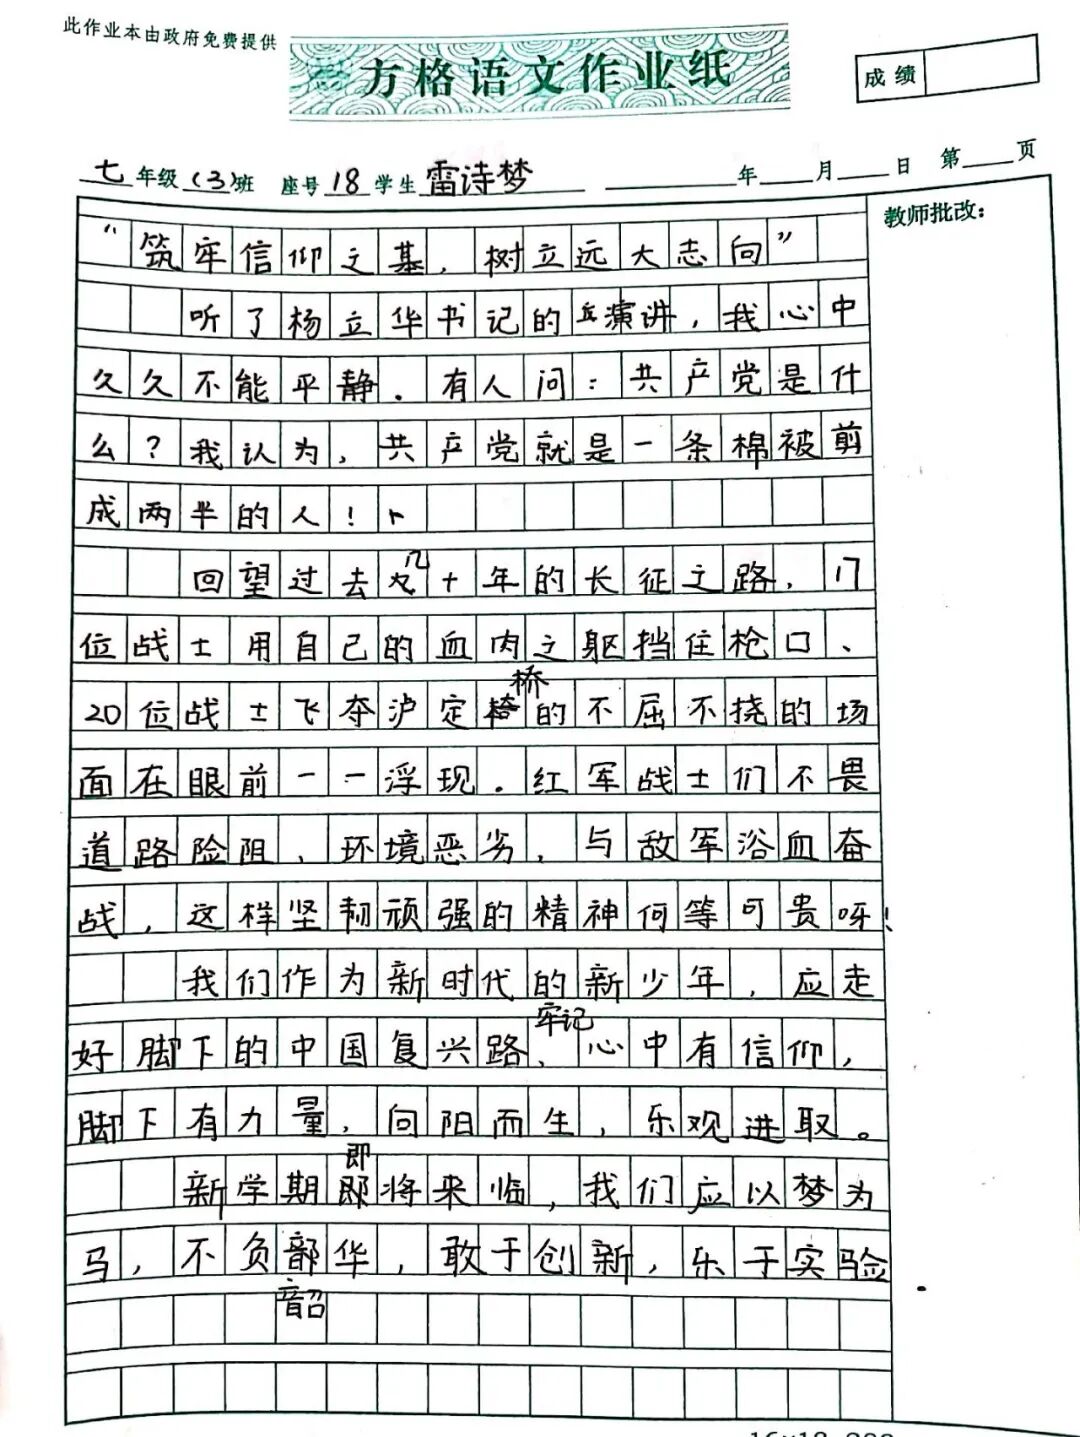 此作业本由政府免费提供
方格语文作业纸
成绩
七年级(3)班 座号18学生雷诗梦 年 月 日 第 页
教师批改：
“筑牢信仰之基，树立远大志向”
听了杨立华书记的演讲，我心中
久久不能平静．有人问：共产党是什
么？我认为，共产党就是一条棉被剪
成两半的人！
回望过去几十年的长征之路，17
位战士用自己的血肉之躯挡住枪口、
20位战士飞夺泸定桥的不屈不挠的场
面在眼前一一浮现．红军战士们不畏
道路险阻、环境恶劣，与敌军浴血奋
战，这样坚韧顽强的精神何等可贵呀！
我们作为新时代的新少年，应走
好脚下的中国复兴路、牢记心中有信仰，
脚下有力量，向阳而生，乐观进取。
新学期即将来临，我们应以梦为
马，不负韶华，敢于创新，乐于实验．